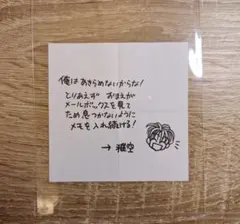 俺はあきらめないからな!
とりあえず おまえが
メールボックスを見て
ため息つかないように
メモを入れ続ける!
→ 雅空